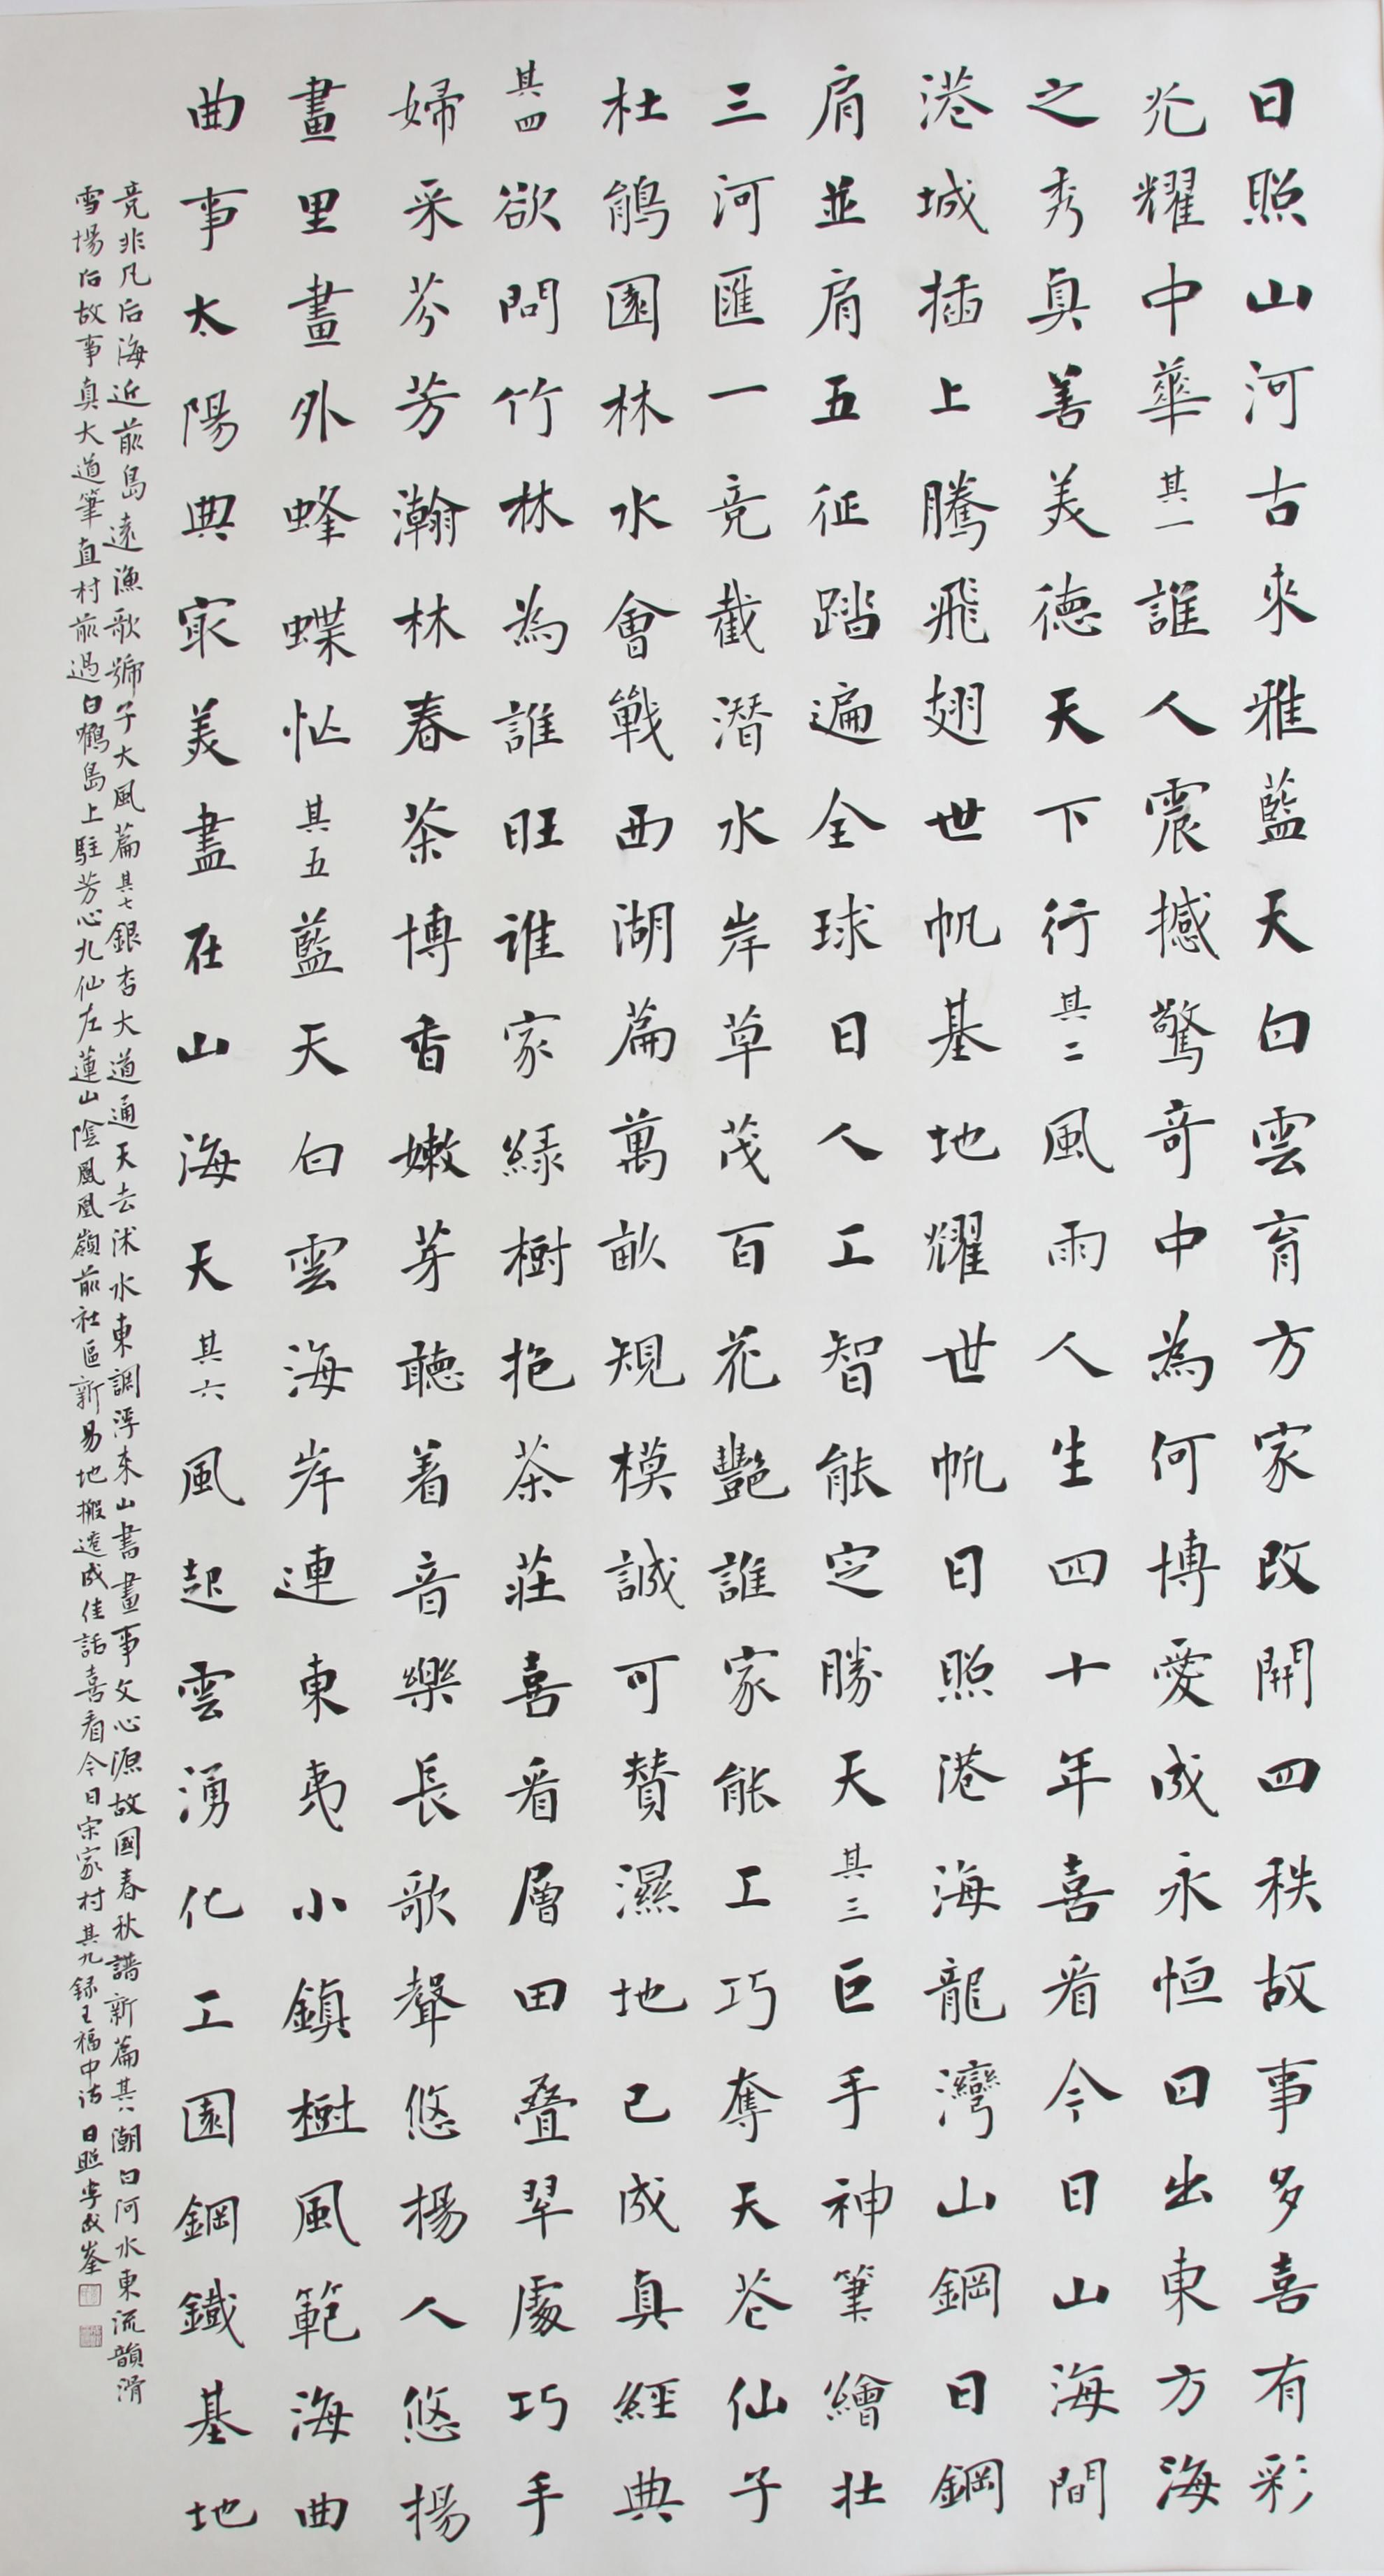 日照山河古來雅藍天白雲育方家改開四秩故事多喜有彩
光耀中華其一誰人震撼驚奇中為何博愛成永恒日出東方海
之秀真善美德天下行其二風雨人生四十年喜看今日山海間
港城插上騰飛翅世帆基地耀世帆日照港海龍灣山鋼日鋼
肩並肩五征踏遍全球日人工智能定勝天其三巨手神筆繪壯
三河匯一竞截潛水岸草茂百花艷誰家能工巧奪天花仙子
杜鵑園林水會戰西湖篇萬畝規模誠可贊濕地已成真經典
其四欲問竹林為誰旺谁家綠樹抱茶莊喜看層田叠翠處巧手
婦采芬芳瀚林春茶博香嫩芽聽着音樂長歌聲悠揚人悠揚
畫里畫外蜂蝶忙其五藍天白雲海岸連東夷小鎮樹風範海曲
曲事太陽典最美盡在山海天其六風起雲湧化工園鋼鐵基地
竞非凡后海近前島遠漁歌號子大風篇其七銀杏大道通天去沭水東調浮来山書畫事文心源故國春秋譜新篇其八潮白河水東流韻滑
雪場后故事真大道筆直村前過白鶴島上駐芳心九仙左蓮山陰鳳凰嶺前社區新易地搬遷成佳話喜看今日宋家村其九録王福中詩日照李成峯